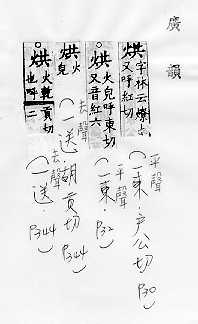 廣韻
烘 字林云燎也又呼紅切
(一東·戶公切 P30)
平聲
烘 火皃呼東切又音紅六
(一東·P32)
平聲
烘 火皃
(一送 胡貢切 P344)
去聲
烘 火乾也呼貢切二
(一送·P344)
去聲